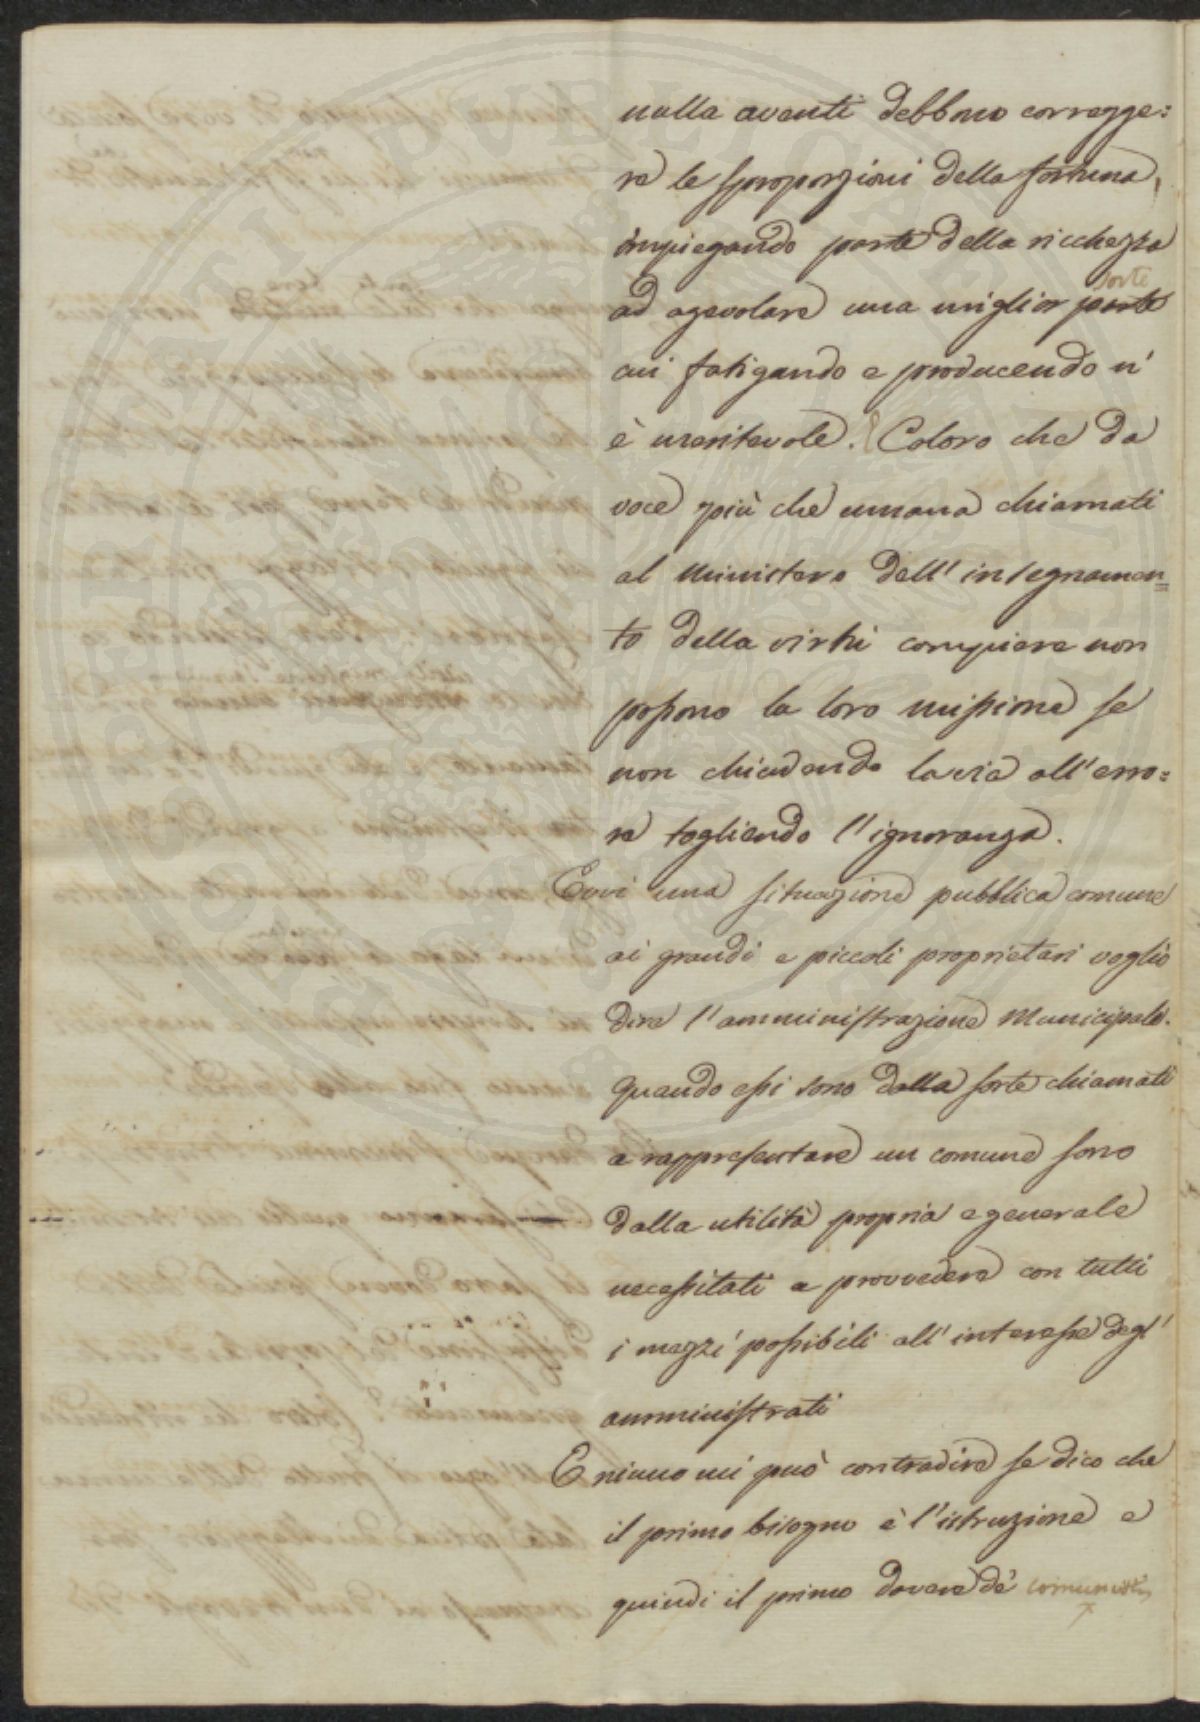 nulla aventi debbono corregge=
re le sproporzioni della fortuna,
impiegando parte della ricchezza
sorte
ad agevolare una miglior parte
cui fatigando e producendo n'
è meritevole. Coloro che da
voce più che umana chiamati
al Ministero dell'insegnamen=
to della virtù compiere non
possono la loro missione se
non chiudendo la via all'erro=
re togliendo l'ignoranza.
Evvi una situazione pubblica comune
ai grandi e piccoli proprietari voglio
dire l'amministrazione Municipale.
Quando essi sono dalla sorte chiamati
a rappresentare un comune sono
dalla utilità propria e generale
necessitati a provvedere con tutti
i mezzi possibili all'interesse degl'
amministrati
E niuno mi può contradire se dico che
il primo bisogno è l'istruzione e
quindi il primo dovere de' comunisti